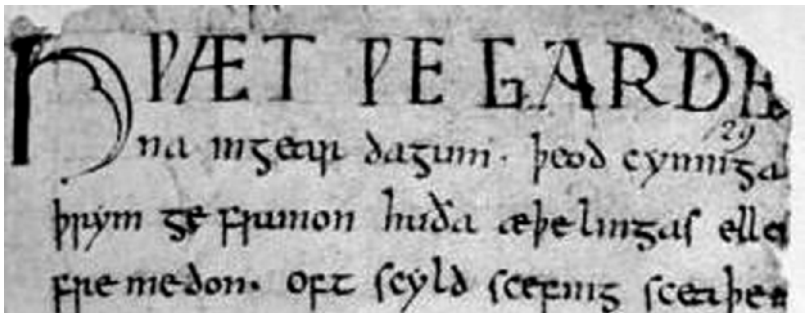 HǷÆT ǷE GARDE
29
na ingear dagum. þeod cyninga
þrym ge frunon huða æþelingas elle
fre medon. oft scyld scefing sceaþe